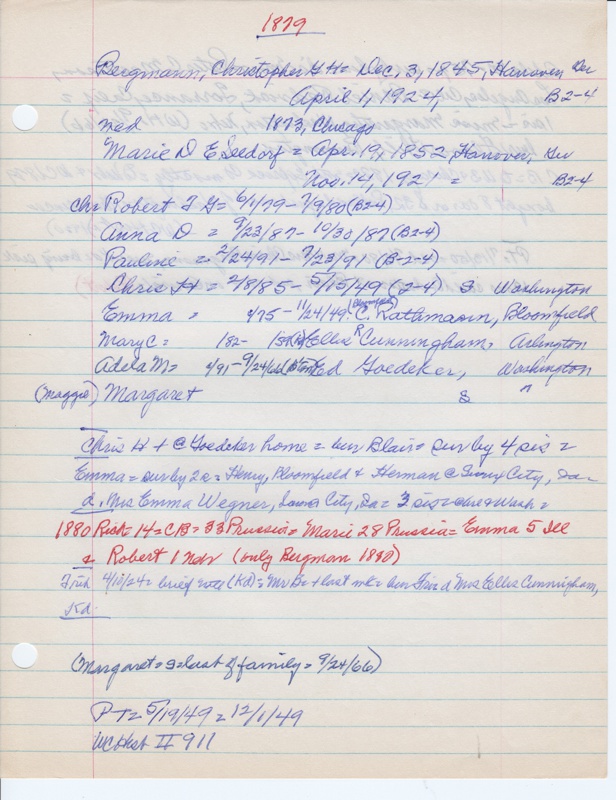 1879
Bergmann, Christopher G H = Dec, 3, 1845, Hanover Ger
April 1, 1924, B2-4
med 1873, Chicago
Marie D E Seedorf = Apr. 19, 1852, Hanover, Ger
Nov. 14, 1921 = B2-4
Ch= Robert F G = 6/1/79 - 7/9/80 (B2-4)
Anna D = 9/23/87 - 10/30/87 (B2-4)
Pauline = 2/24/91 - 7/23/91 (B-2-4)
Chris H = 2/8/85 - 5/15/49 (2-4) S Washington
Emma = 1/75 - 11/24/49 (Bloomfield) C. Rathmann, Bloomfield
Mary C = 182- Ellis R Cunningham, Arlington
Adela M = 1/91 - 9/24/66 Ed Goedeker, Washington
(Maggie) Margaret S "
Chris H + @ Goedeker home = bur Blair = sur by 4 sis =
Emma = sur by 2 s = Henry, Bloomfield & Herman @ Sioux City, Ia =
d. Mrs Emma Wegner, City, Ia = 3 sis =
1880 Rich = 14 = CB = 33 Prussia = Marie 28 Prussia = Emma 5 Ill
& Robert 1 Neb (only Bergman 1880)
Trib 4/10/24 = brief note (Kd) = Mr B = + last wk = bur d Mrs Ellis Cunningham,
Kd.
(Margaret = S = last of family = 9/24/66)
PT = 5/19/49 = 12/1/49
WCHist II 911